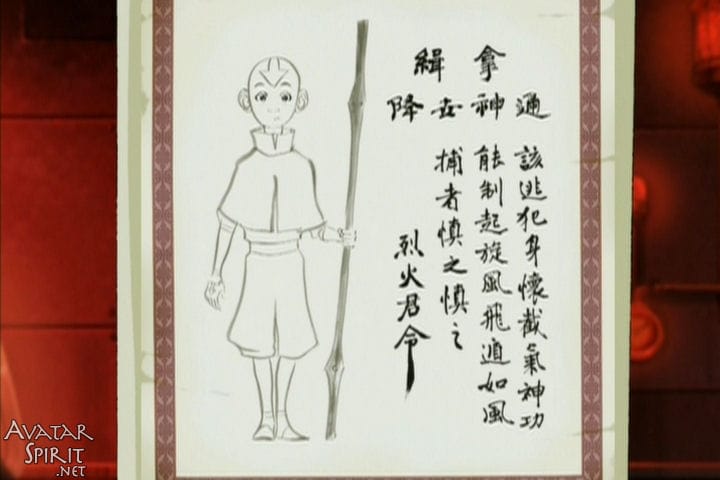 緝拿
降世神通
該逃犯身懷截氣神功
能制起旋風飛遁如風
捕者慎之慎之
烈火君令
AVATAR
SPIRIT
.NET